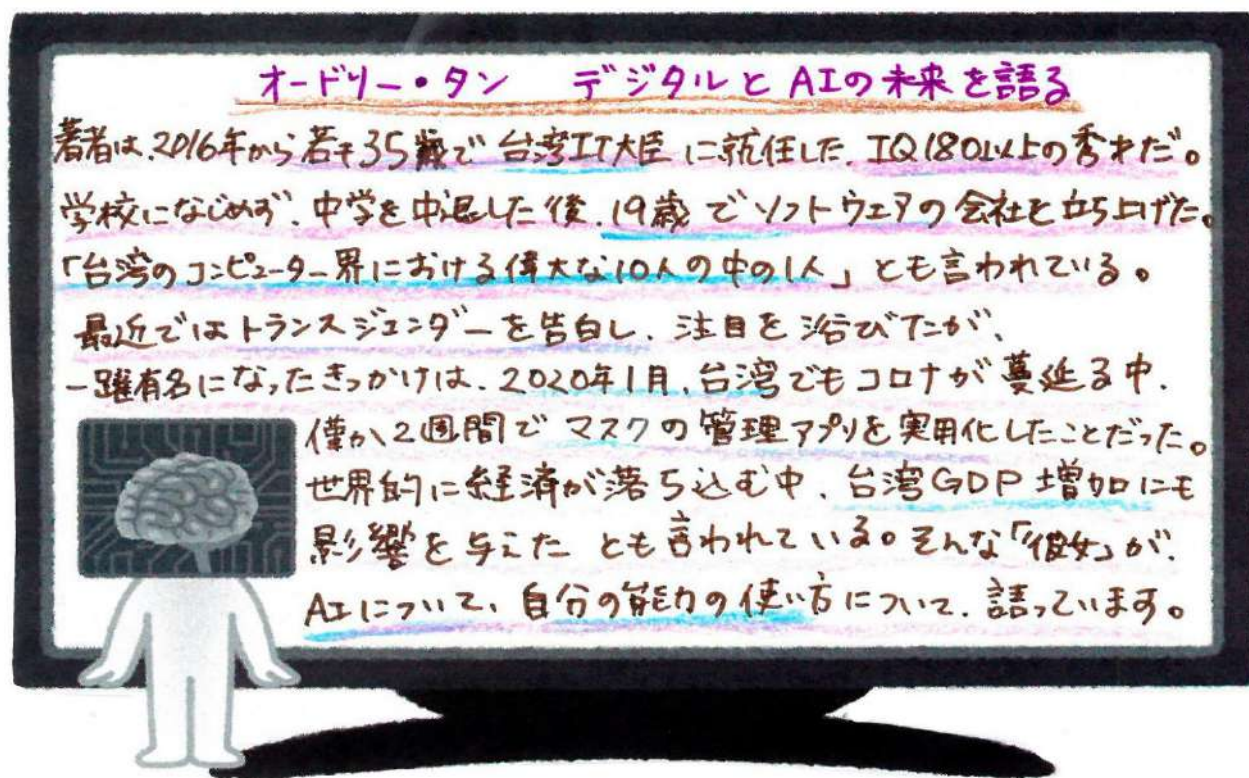 オードリー・タン　デジタルとAIの未来を語る
著者は、2016年から若干35歳で台湾IT大臣に就任した、IQ180以上の秀才だ。
学校になじめず、中学を中退した後、19歳でソフトウェアの会社を立ち上げた。
「台湾のコンピューター界における偉大な10人の中の1人」とも言われている。
最近ではトランスジェンダーを告白し、注目を浴びたが、
一躍有名になったきっかけは、2020年1月、台湾でもコロナが蔓延る中、
僅か2週間でマスクの管理アプリを実用化したことだった。
世界的に経済が落ち込む中、台湾GDP増加にも
影響を与えたとも言われている。そんな「彼女」が、
AIについて、自分の能力の使い方について、語っています。